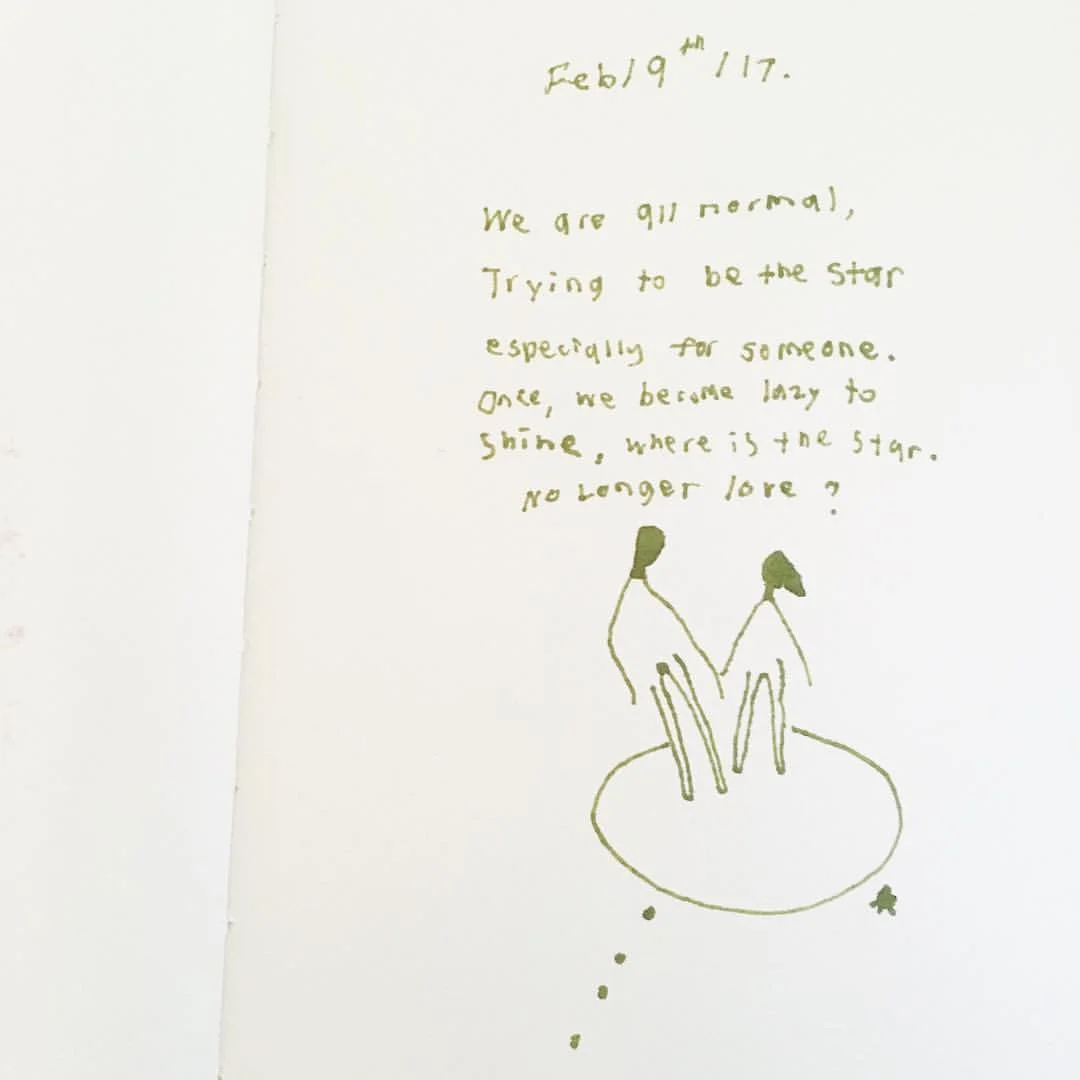 Feb/9th/17.
We are all normal,
Trying to be the star
especially for someone.
Once, we become lazy to
shine, where is the star.
No Longer love ?